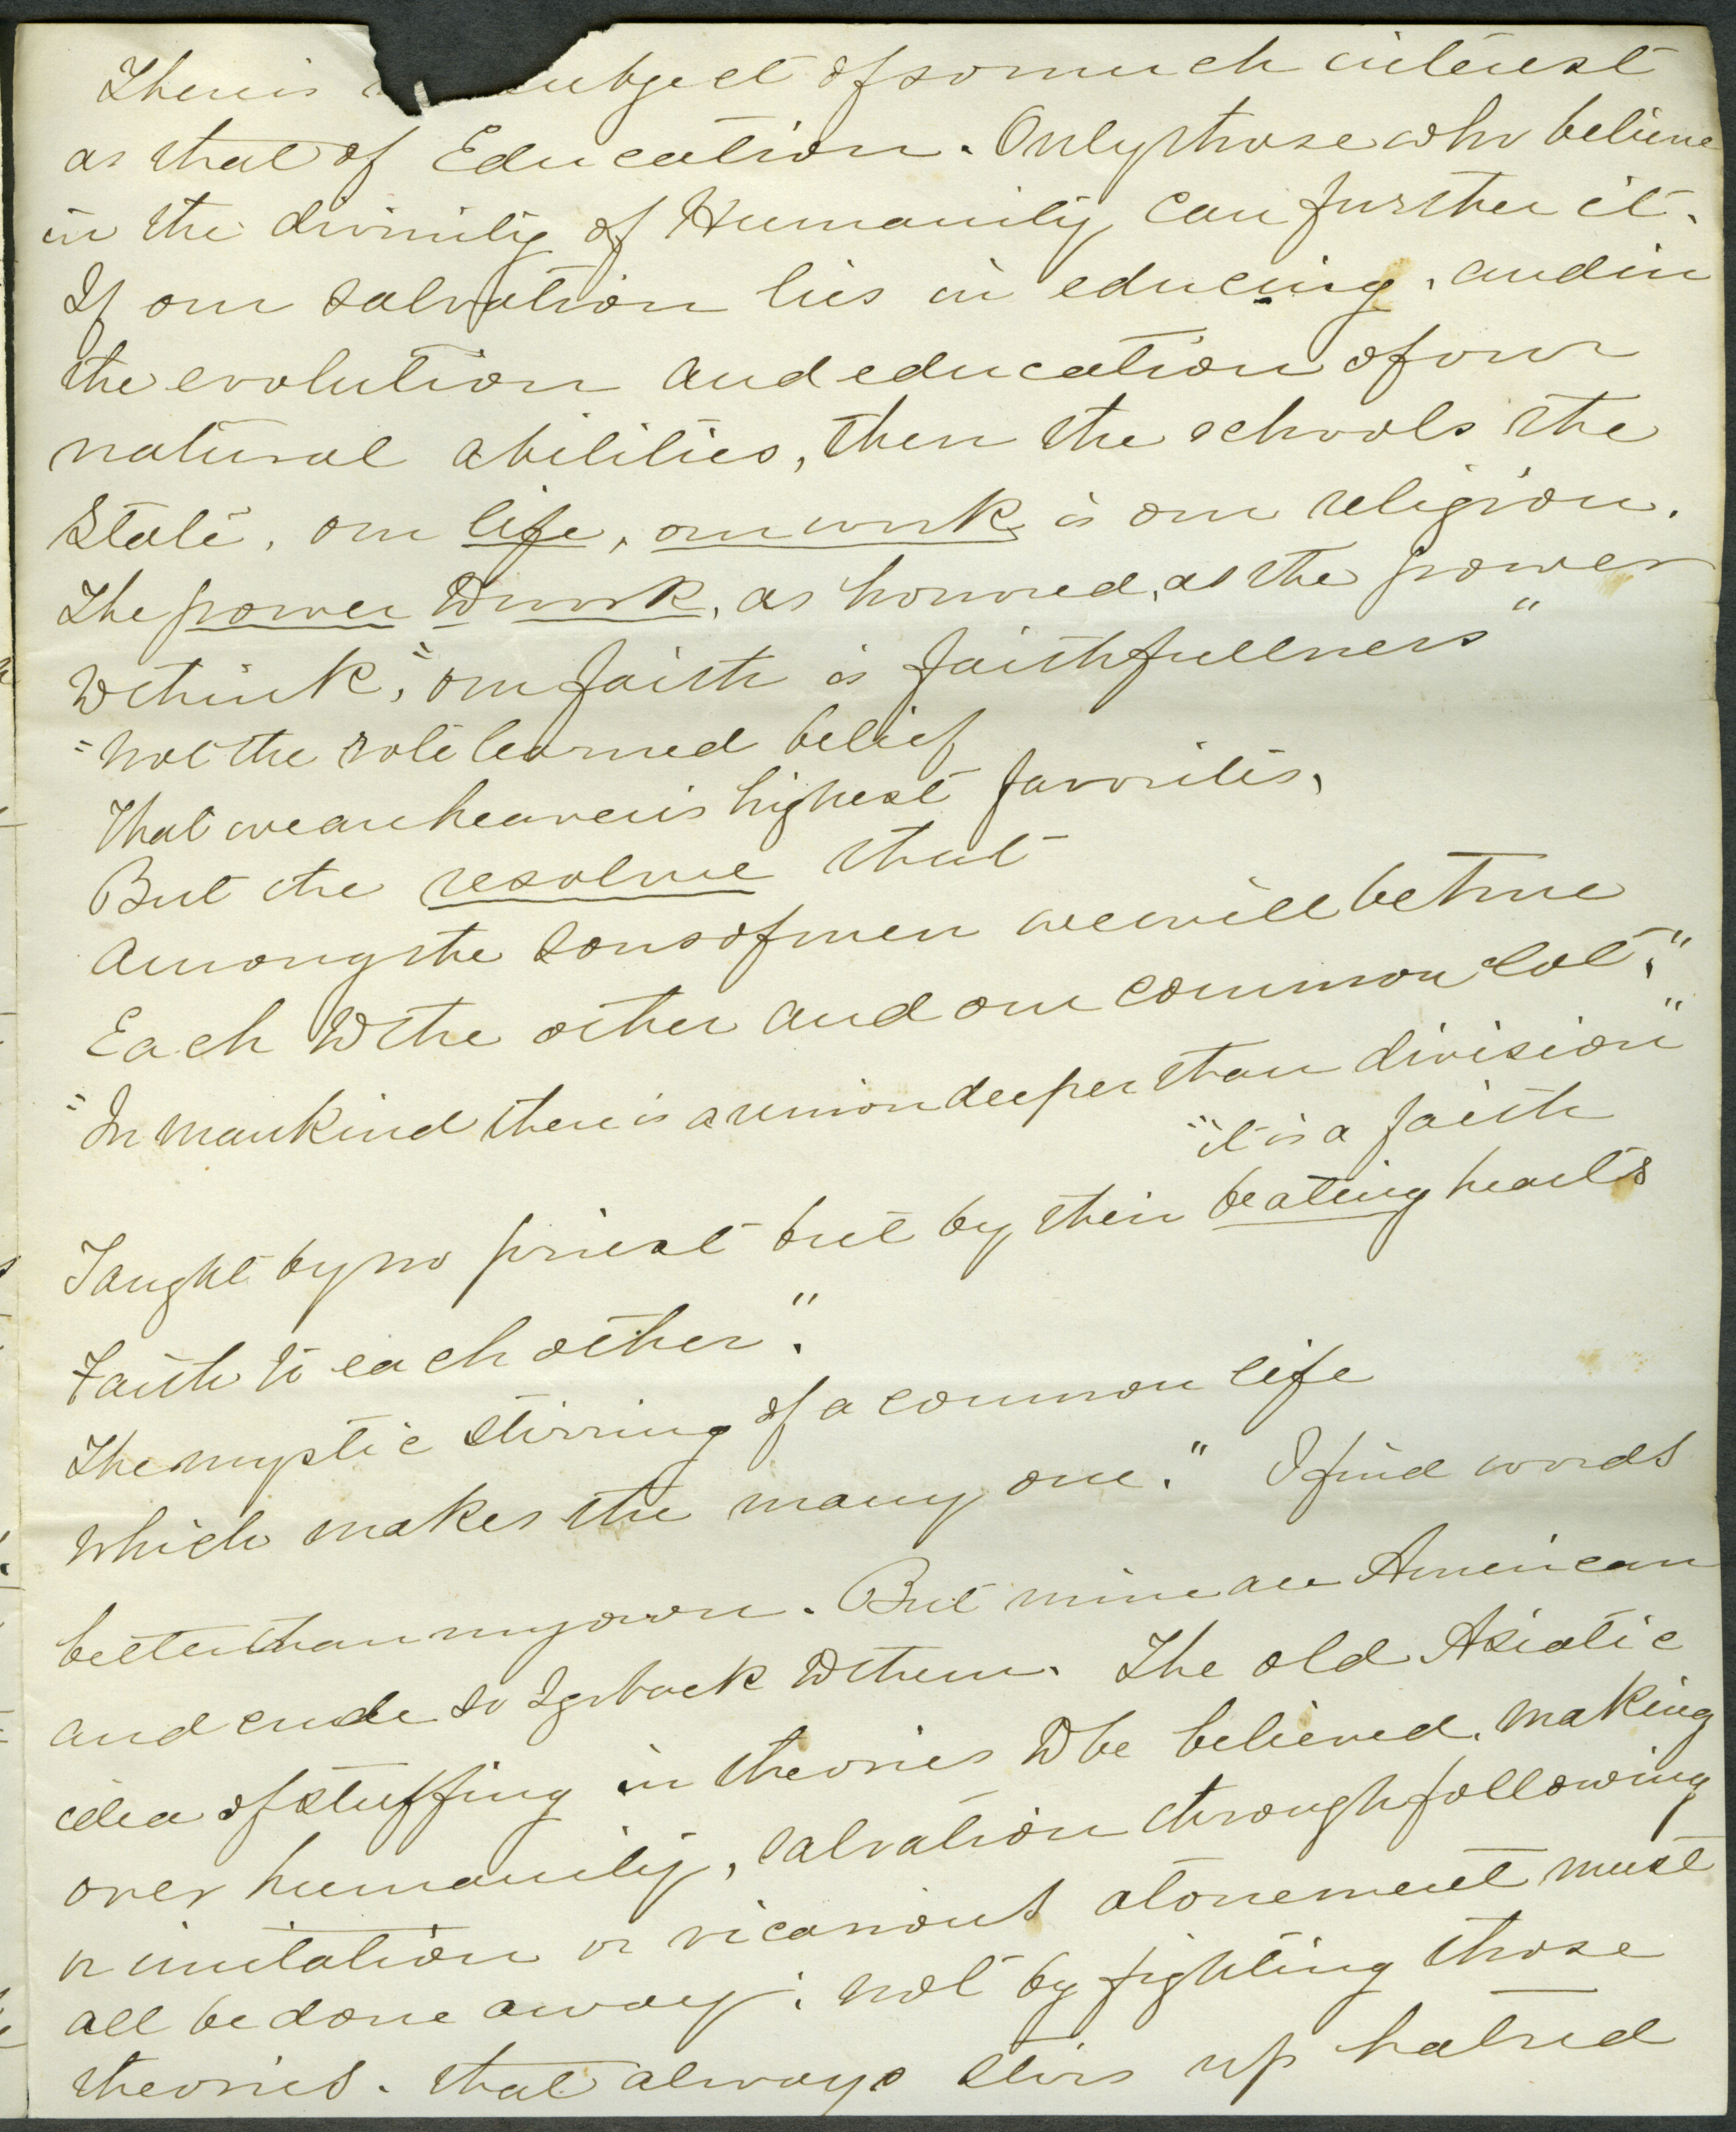 There is subject of so much interest
as that of Education. Only those who believe
in the divinity of Humanity can further it.
If our salvation lies in educing, and in
the evolution and education of our
natural abilities, then the schools the
State, our life, our work is our religion.
The power to work, as honored, as the power
to think, "our faith is faithfullness"
"not the rote learned belief
That we are heaven's highest favorites,
But the resolve that
Among the sons of men we will be true
Each to the other and our common lot."
"In mankind there is a union deeper than division"
"it is a faith
Taught by no priest but by their beating hearts
Faith to each other".
The mystic stirring of a common life
which makes the many one." I find words
better than my own. But mine are American
and crude so I go back to them. The old Asiatic
idea of stuffing in theories to be believed, making
over humanity, salvation through following
or imitation or vicarious atonement must
all be done away; not by fighting those
theories. that always stirs up hatred